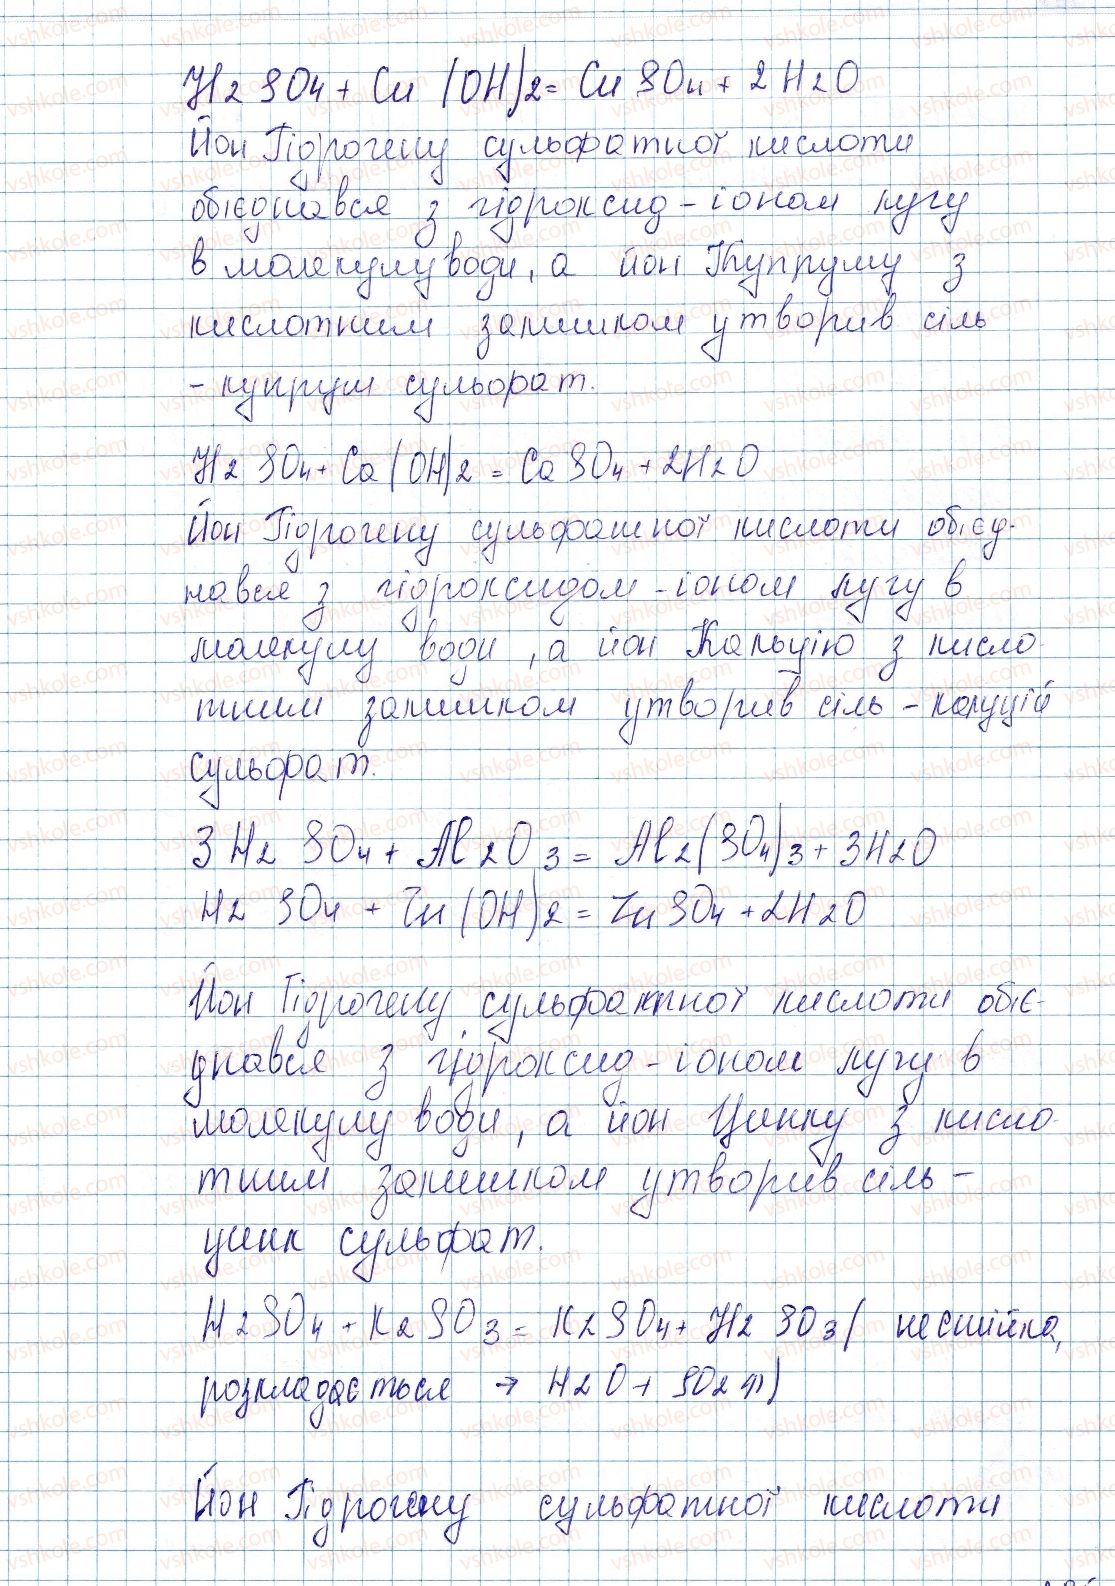 H2SO4 + Cu(OH)2 = CuSO4 + 2H2O
Йон Гідрогену сульфатної кислоти
обієднався з гідроксид-іоном лугу
в молекулу води, а йон Купруму з
кислотним залишком утворив сіль
- купрум сульфат.
H2SO4 + Ca(OH)2 = CaSO4 + 2H2O
Йон Гідрогену сульфатної кислоти обієд-
нався з гідроксидом-іоном лугу в
молекулу води, а йон Кальцію з кисло-
тним залишком утворив сіль - кальцій
сульфат.
3H2SO4 + Al2O3 = Al2(SO4)3 + 3H2O
H2SO4 + Zn(OH)2 = ZnSO4 + 2H2O
Йон Гідрогену сульфатної кислоти обіє-
днався з гідроксид-іоном лугу в
молекулу води, а йон Цинку з кисло-
тним залишком утворив сіль -
цинк сульфат.
H2SO4 + K2SO3 = K2SO4 + H2SO3 (нестійка,
розкладається → H2O + SO2↑)
Йон Гідрогену сульфатної кислоти